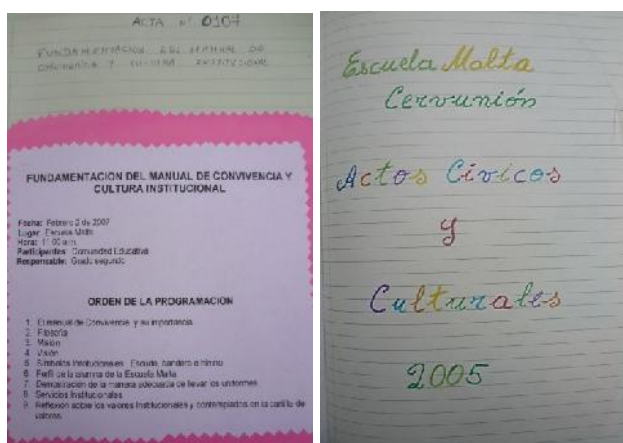 ACTA Nº 0107
FUNDAMENTACION DEL MANUAL DE
CONVIVENCIA Y CULTURA INSTITUCIONAL
FUNDAMENTACION DEL MANUAL DE CONVIVENCIA Y
CULTURA INSTITUCIONAL
Fecha: Febrero 2 de 2007
Lugar: Escuela Malta
Hora: 11:00 a.m.
Participantes: Comunidad Educativa
Responsable: Grado segundo
ORDEN DE LA PROGRAMACION
1. El manual de Convivencia y su importancia
2. Filosofía
3. Misión
4. Visión
5. Símbolos Institucionales: Escudo, bandera e himno
6. Perfil de la alumna de la Escuela Malta
7. Demostración de la manera adecuada de llevar los uniformes
8. Servicios Institucionales
9. Reflexion sobre los valores Institucionales y contemplados en la cartilla de
valores
Escuela Malta
Cervunión
Actos Cívicos
y
Culturales
2005